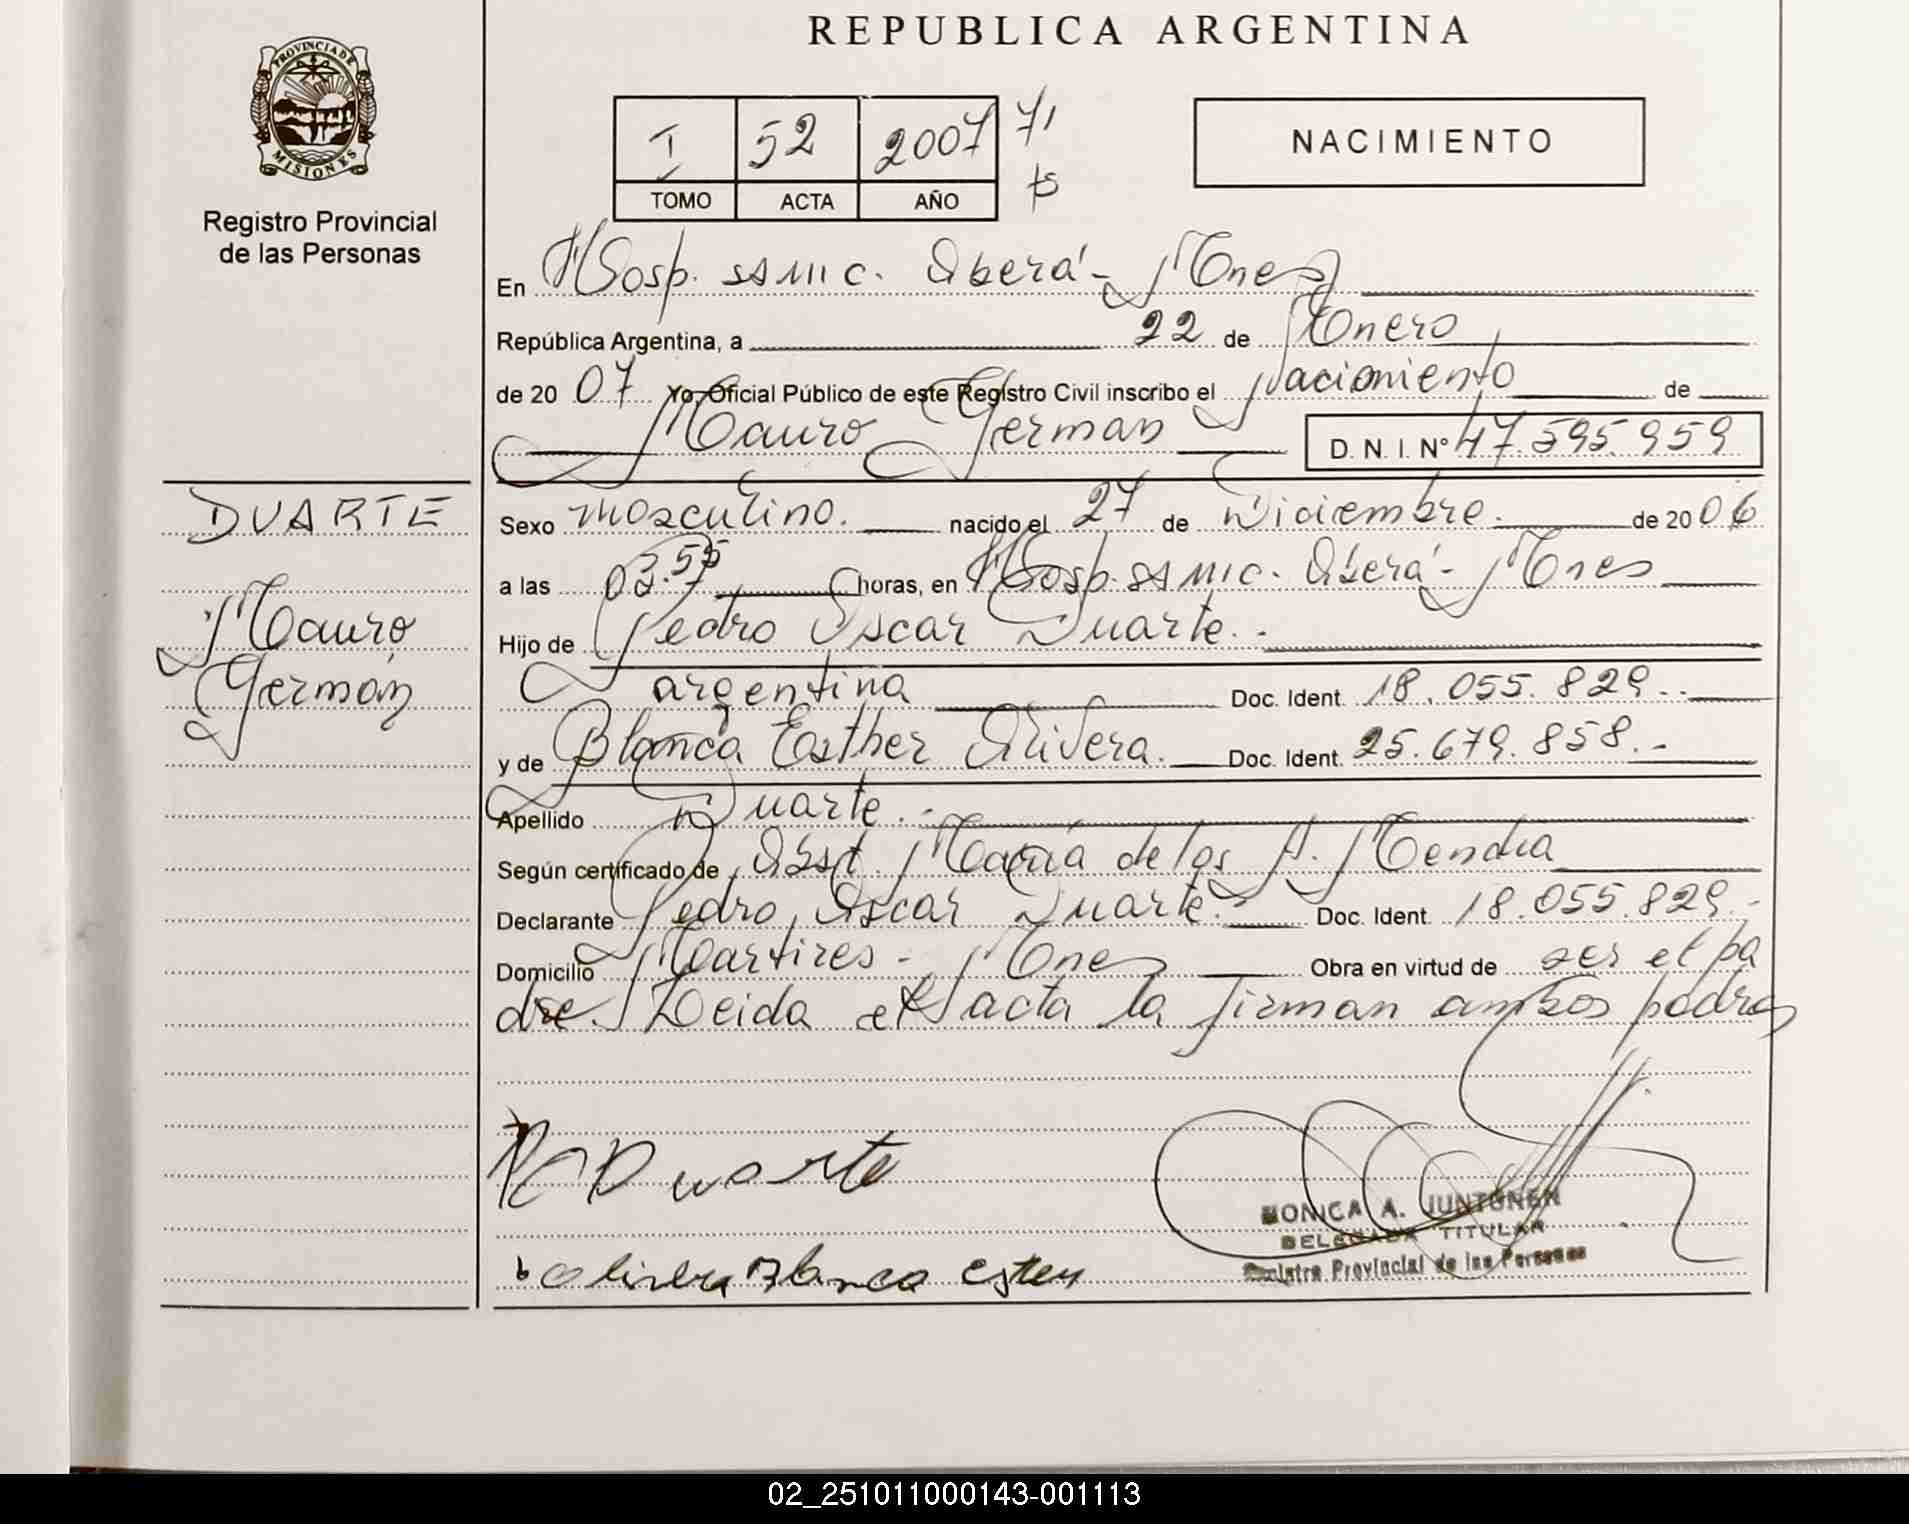 REPUBLICA ARGENTINA
PROVINCIA DE
MISIONES
Registro Provincial
de las Personas
I 52 2007 71
TOMO ACTA AÑO
NACIMIENTO
En Hosp. SAMIC. Oberá - Mnes
República Argentina, a 22 de Enero
de 2007 Yo, Oficial Público de este Registro Civil inscribo el Nacimiento de
Mauro German D. N. I. Nº 47.595.959
DUARTE
Mauro
Germán
Sexo masculino. nacido el 27 de Diciembre. de 2006
a las 03.55 horas, en Hosp. SAMIC. Oberá - Mnes
Hijo de Pedro Oscar Duarte. -
argentina Doc. Ident. 18.055.829. -
y de Blanca Esther Olivera. Doc. Ident. 25.679.858. -
Apellido Duarte. -
Según certificado de Obst. María de los A. Mendia
Declarante Pedro Oscar Duarte. - Doc. Ident. 18.055.829. -
Domicilio Martires - Mnes Obra en virtud de ser el pa
dre. Leida el acta la firman ambos padres
Duarte
olivera Blanca ester
MONICA A. JUNTUNEN
DELEGADA TITULAR
Registro Provincial de las Personas
02_251011000143-001113